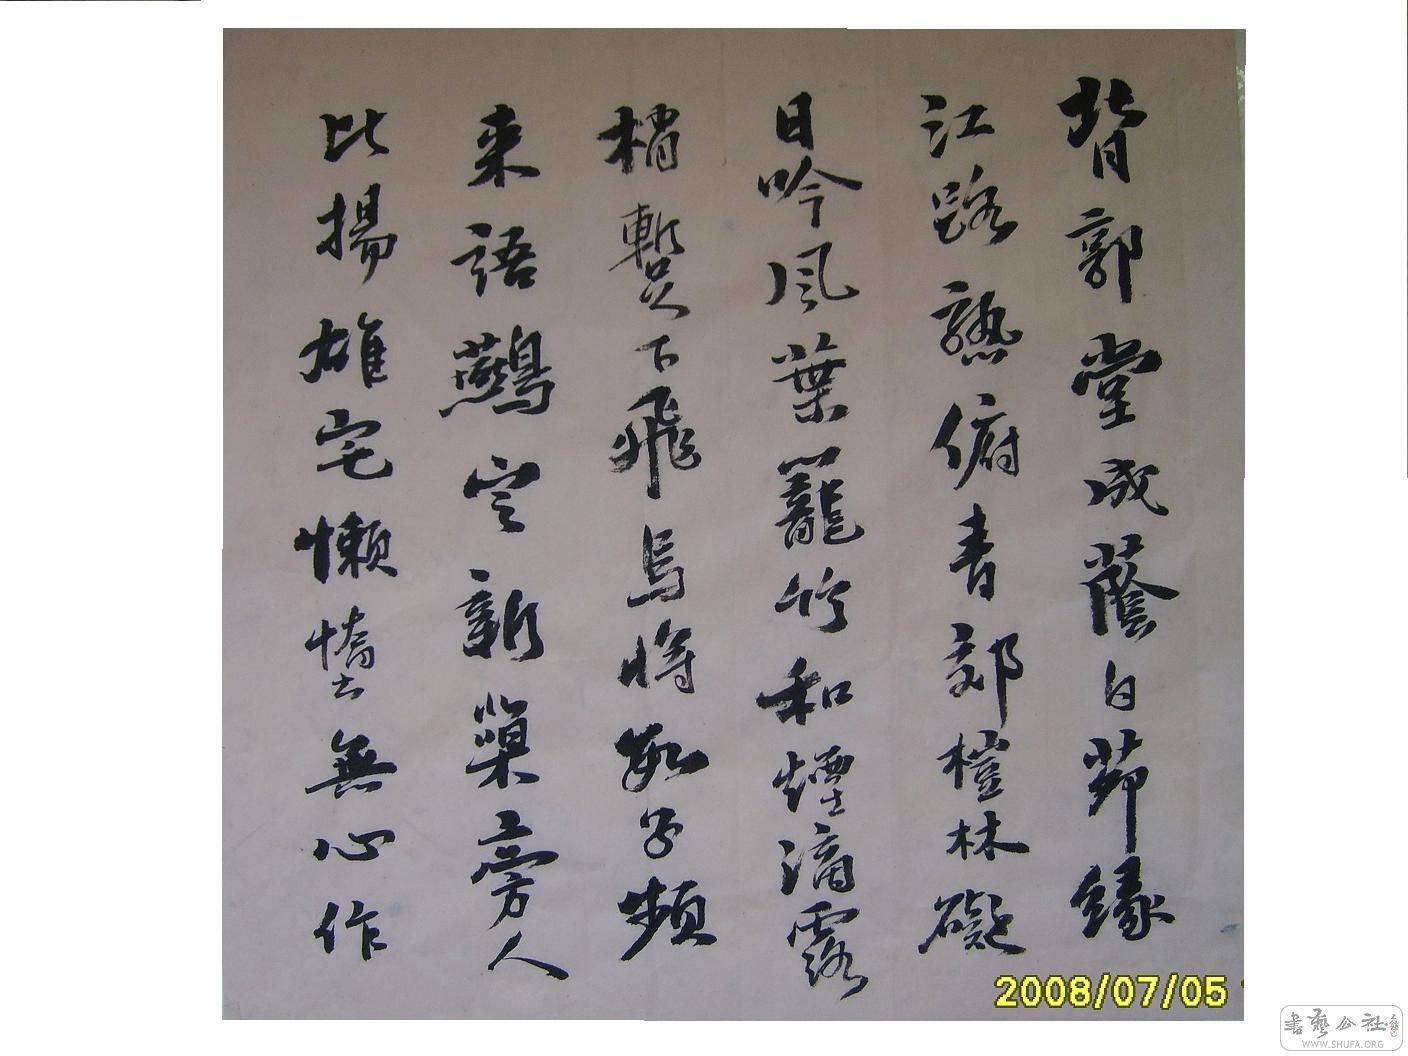 背郭堂成蔭白茆緣
江路熟俯青郊榿林礙
日吟風葉籠竹和煙滴露
梢暫下飛烏將數子頻
来語鷰定新巢旁人
比揚雄宅懶惰無心作
2008/07/05
書藝公社
WWW.SHUFA.ORG